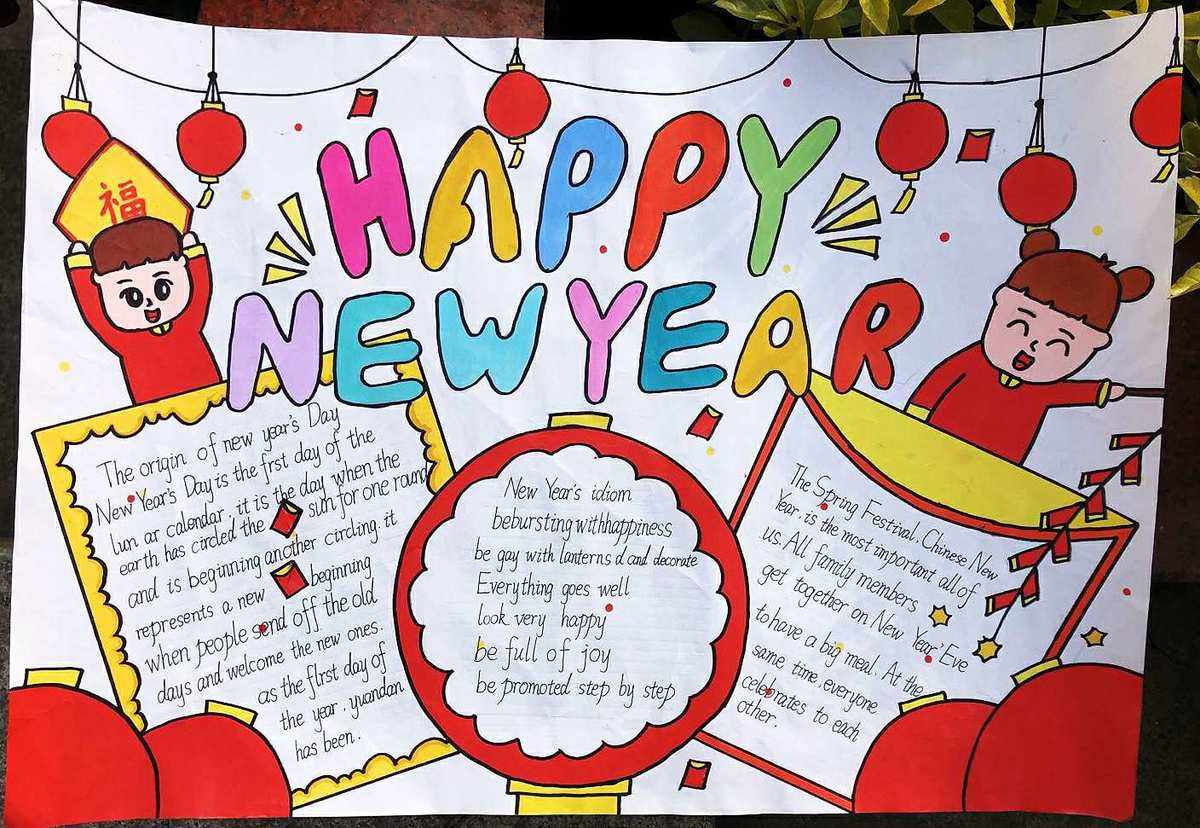 福
HAPPY
NEW YEAR
The origin of new year's Day
New Year's Day is the first day of the
lun ar calendar, it is the day when the
earth has circled the sun for one round
and is beginning another circling. it
represents a new beginning
when people send off the old
days and welcome the new ones.
as the flrst day of
the year. yuandan
has been.
New Year's idiom
bebursting withhappiness
be gay with lanterns d and decorate
Everything goes well
look very happy
be full of joy
be promoted step by step
The Spring Festival. Chinese New
Year. is the most important all of
us. All family members
get together on New Year' Eve
to have a big meal. At the
same time. everyone
celebrates to each
other.